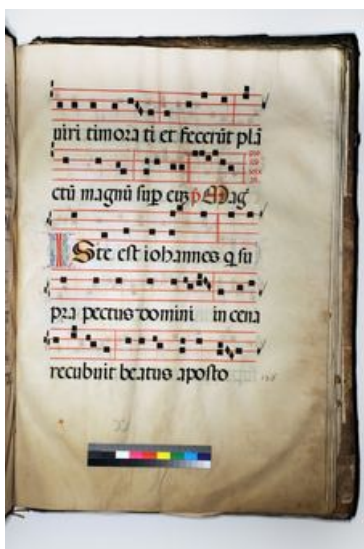 uiri timora ti et fecerūt plā
ctū magnū sup eū p̄ Mag
Iste est iohannes q su
pra pectus domini in cena
recubuit beatus aposto